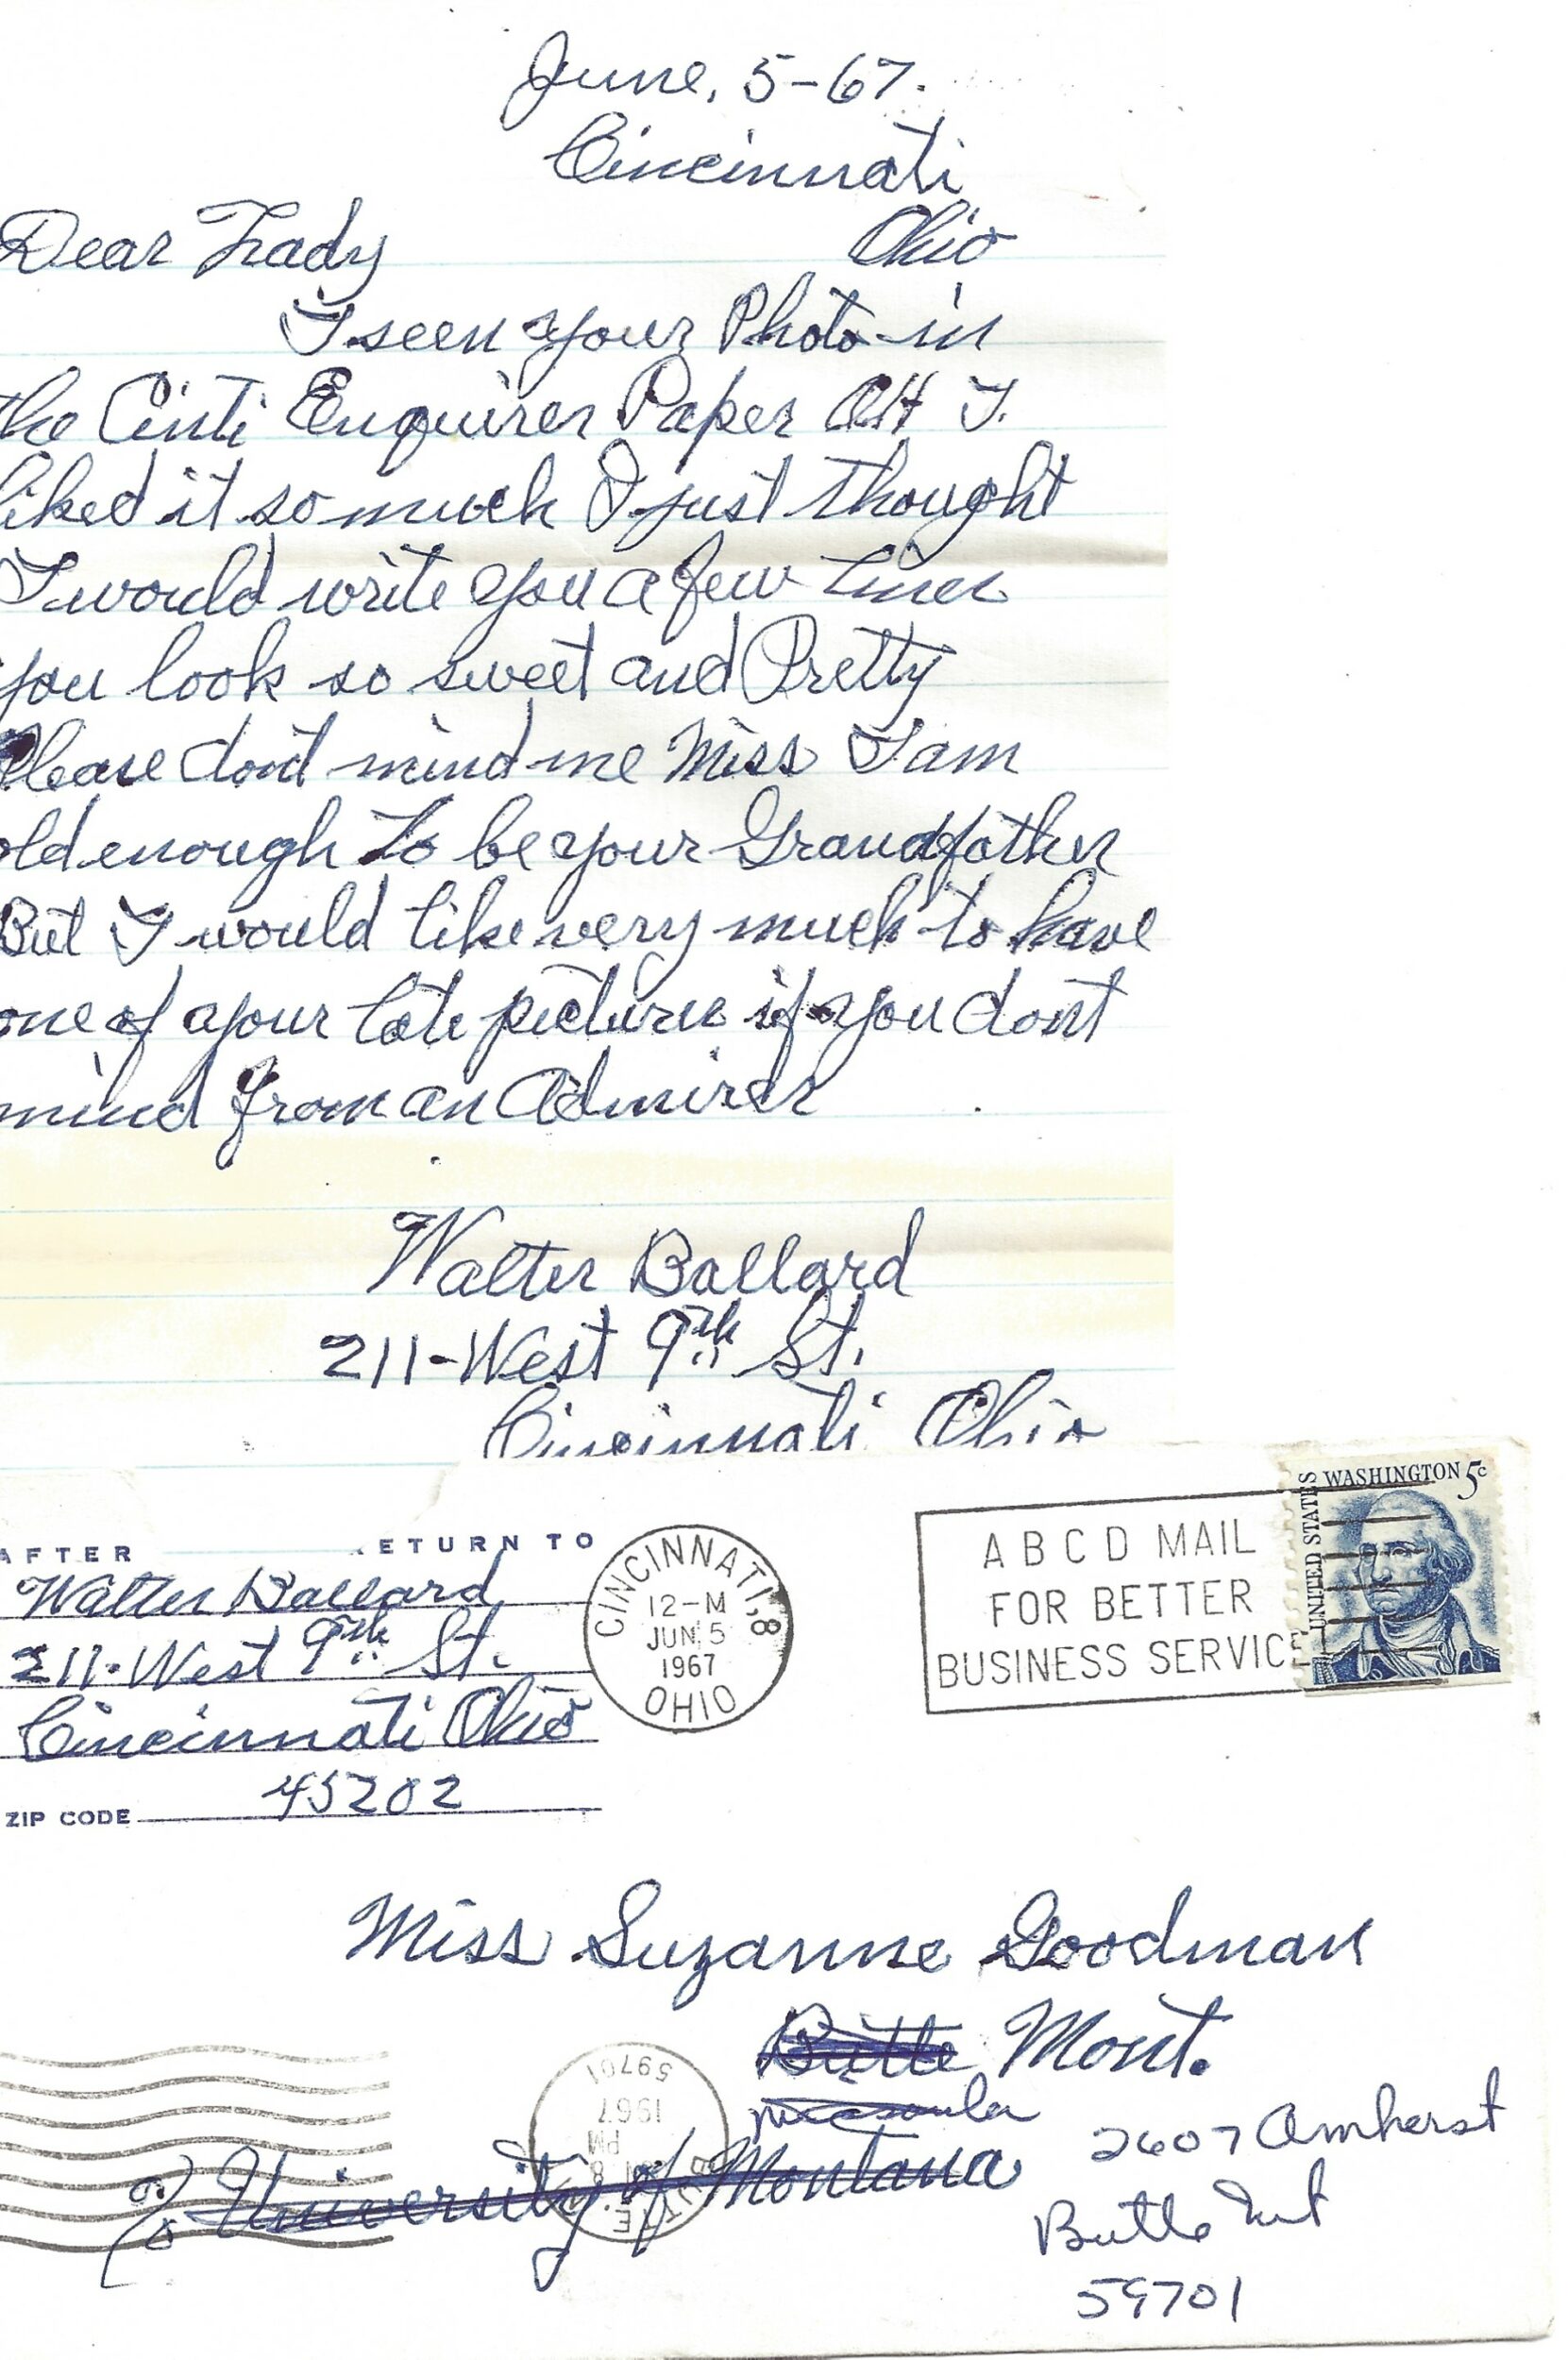 June, 5-67.
Cincinnati
Ohio
Dear Lady
I seen your Photo in
the Cinti Enquirer Paper AH I.
liked it so much I just thought
I would write you a few lines
you look so sweet and Pretty
Please dont mind me Miss I am
old enough To be your Grandfather
But I would like very much to have
one of your late pictures if you dont
mind from an Admirer
Walter Ballard
211-West 9th St.
Cincinnati Ohio
AFTER ETURN TO
Walter Ballard
211-West 9th St.
Cincinnati Ohio
ZIP CODE 45202
CINCINNATI, 8
12-M
JUN 5
1967
OHIO
ABCD MAIL
FOR BETTER
BUSINESS SERVICE
UNITED STATES
WASHINGTON 5c
Miss Suzanne Goodman
Butte Mont.
Missoula
% University of Montana
2607 Amherst
Butte Mt
59701
BUTTE
8
PM
1967
59701